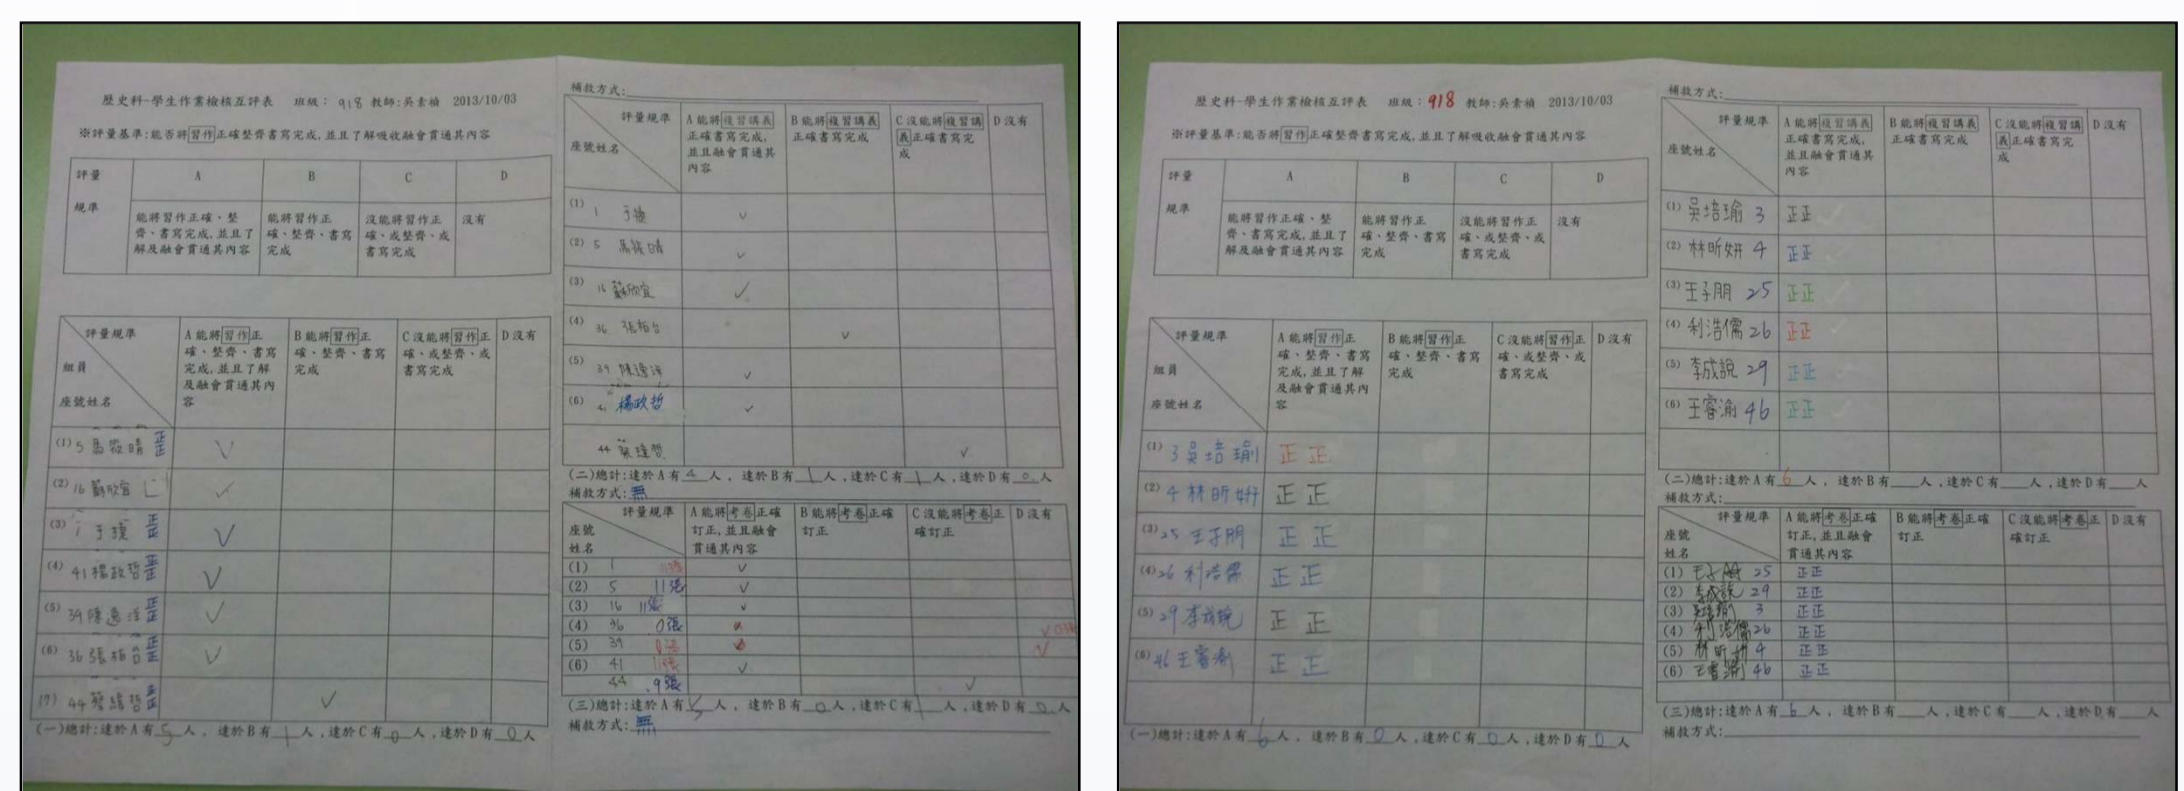 歷史科-學生作業檢核互評表 班級：918 教師:吳素禎 2013/10/03
※評量基準:能否將習作正確整齊書寫完成,並且了解吸收融會貫通其內容
評量規準 A B C D
能將習作正確、整齊、書寫完成,並且了解及融會貫通其內容
能將習作正確、整齊、書寫完成
沒能將習作正確、或整齊、或書寫完成
沒有
評量規準
組員
座號姓名
A 能將習作正確、整齊、書寫完成,並且了解及融會貫通其內容
B 能將習作正確、整齊、書寫完成
C 沒能將習作正確、或整齊、或書寫完成
D 沒有
(1) 5 正正 ✓
(2) 16 蘇欣宜 ✓
(3) 1 正正 ✓
(4) 41 楊政哲 正正 ✓
(5) 39 正正 ✓
(6) 36 張栢台 正正 ✓
(7) 44 正正 ✓
(一)總計:達於A有 5 人，達於B有 1 人,達於C有 0 人,達於D有 0 人
補救方式:
評量規準
座號姓名
A 能將複習講義正確書寫完成,並且融會貫通其內容
B 能將複習講義正確書寫完成
C 沒能將複習講義正確書寫完成
D 沒有
(1) 1 ✓
(2) 5 ✓
(3) 16 蘇欣宜 ✓
(4) 36 張栢台 ✓
(5) 39 ✓
(6) 41 楊政哲 ✓
44 ✓
(二)總計:達於A有 4 人，達於B有 1 人,達於C有 1 人,達於D有 0 人
補救方式:無
評量規準
座號
姓名
A 能將考卷正確訂正,並且融會貫通其內容
B 能將考卷正確訂正
C 沒能將考卷正確訂正
D 沒有
(1) 1 11張 ✓
(2) 5 11張 ✓
(3) 16 11張 ✓
(4) 36 0張 ✓
(5) 39 ✓
(6) 41 11張 ✓
44 9張 ✓
(三)總計:達於A有 5 人，達於B有 0 人,達於C有 1 人,達於D有 人
補救方式:無
歷史科-學生作業檢核互評表 班級：918 教師:吳素禎 2013/10/03
※評量基準:能否將習作正確整齊書寫完成,並且了解吸收融會貫通其內容
評量規準 A B C D
能將習作正確、整齊、書寫完成,並且了解及融會貫通其內容
能將習作正確、整齊、書寫完成
沒能將習作正確、或整齊、或書寫完成
沒有
評量規準
組員
座號姓名
A 能將習作正確、整齊、書寫完成,並且了解及融會貫通其內容
B 能將習作正確、整齊、書寫完成
C 沒能將習作正確、或整齊、或書寫完成
D 沒有
(1) 3 吳培瑜 正正
(2) 4 林昕妍 正正
(3) 25 王子朋 正正
(4) 26 利浩儒 正正
(5) 29 李成銳 正正
(6) 46 王睿渝 正正
(一)總計:達於A有 6 人，達於B有 0 人,達於C有 0 人,達於D有 0 人
補救方式:
評量規準
座號姓名
A 能將複習講義正確書寫完成,並且融會貫通其內容
B 能將複習講義正確書寫完成
C 沒能將複習講義正確書寫完成
D 沒有
(1) 吳培瑜 3 正正
(2) 林昕妍 4 正正
(3) 王子朋 25 正正
(4) 利浩儒 26 正正
(5) 李成銳 29 正正
(6) 王睿渝 46 正正
(二)總計:達於A有 6 人，達於B有 人,達於C有 人,達於D有 人
補救方式:
評量規準
座號
姓名
A 能將考卷正確訂正,並且融會貫通其內容
B 能將考卷正確訂正
C 沒能將考卷正確訂正
D 沒有
(1) 王子朋 25 正正
(2) 李成銳 29 正正
(3) 吳培瑜 3 正正
(4) 利浩儒 26 正正
(5) 林昕妍 4 正正
(6) 王睿渝 46 正正
(三)總計:達於A有 6 人，達於B有 人,達於C有 人,達於D有 人
補救方式: